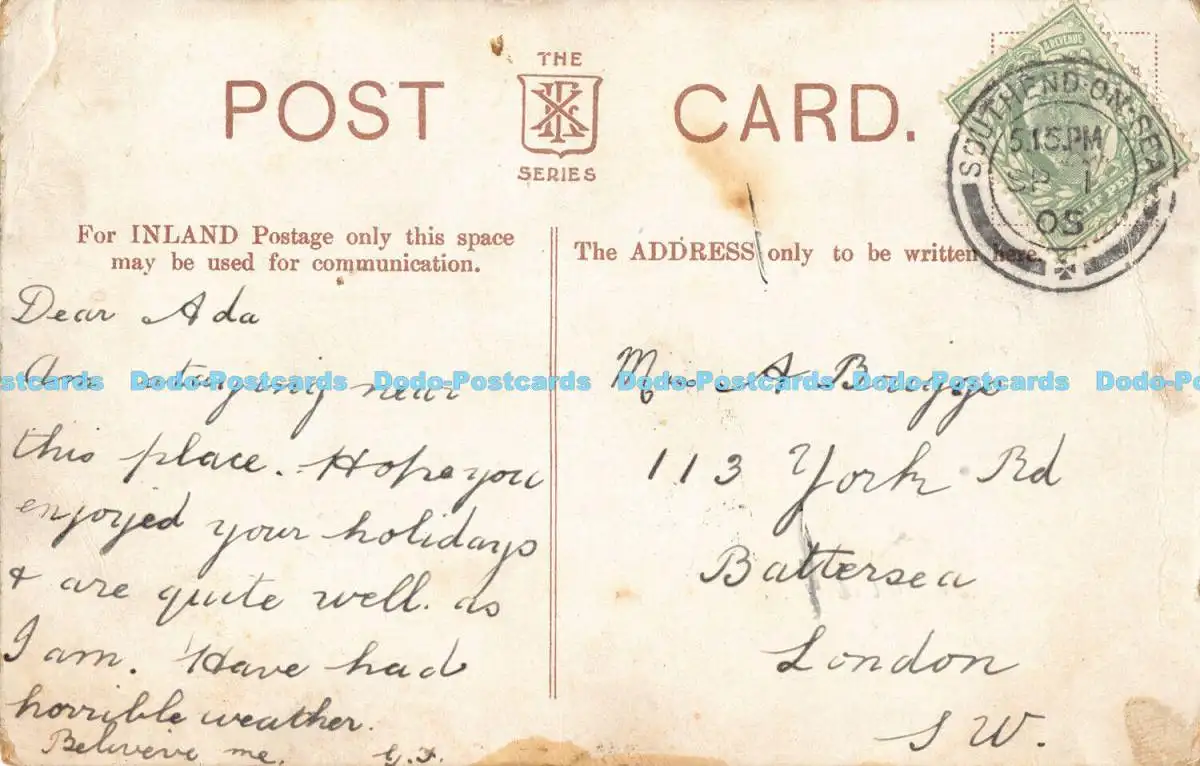 THE
POST CARD.
SERIES
SOUTHEND-ON-SEA
5.15.PM
SP 1
05
For INLAND Postage only this space
may be used for communication.
The ADDRESS only to be written here.
Dear Ada
Am staying near
this place. Hope you
enjoyed your holidays
& are quite well. as
I am. Have had
horrible weather.
Beliveive me. G.F.
A Briggs
113 York Rd
Battersea
London
S W.
Dodo-Postcards Dodo-Postcards Dodo-Postcards Dodo-Postcards